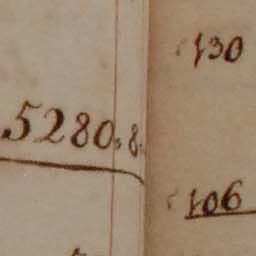 130
5280.8.
106